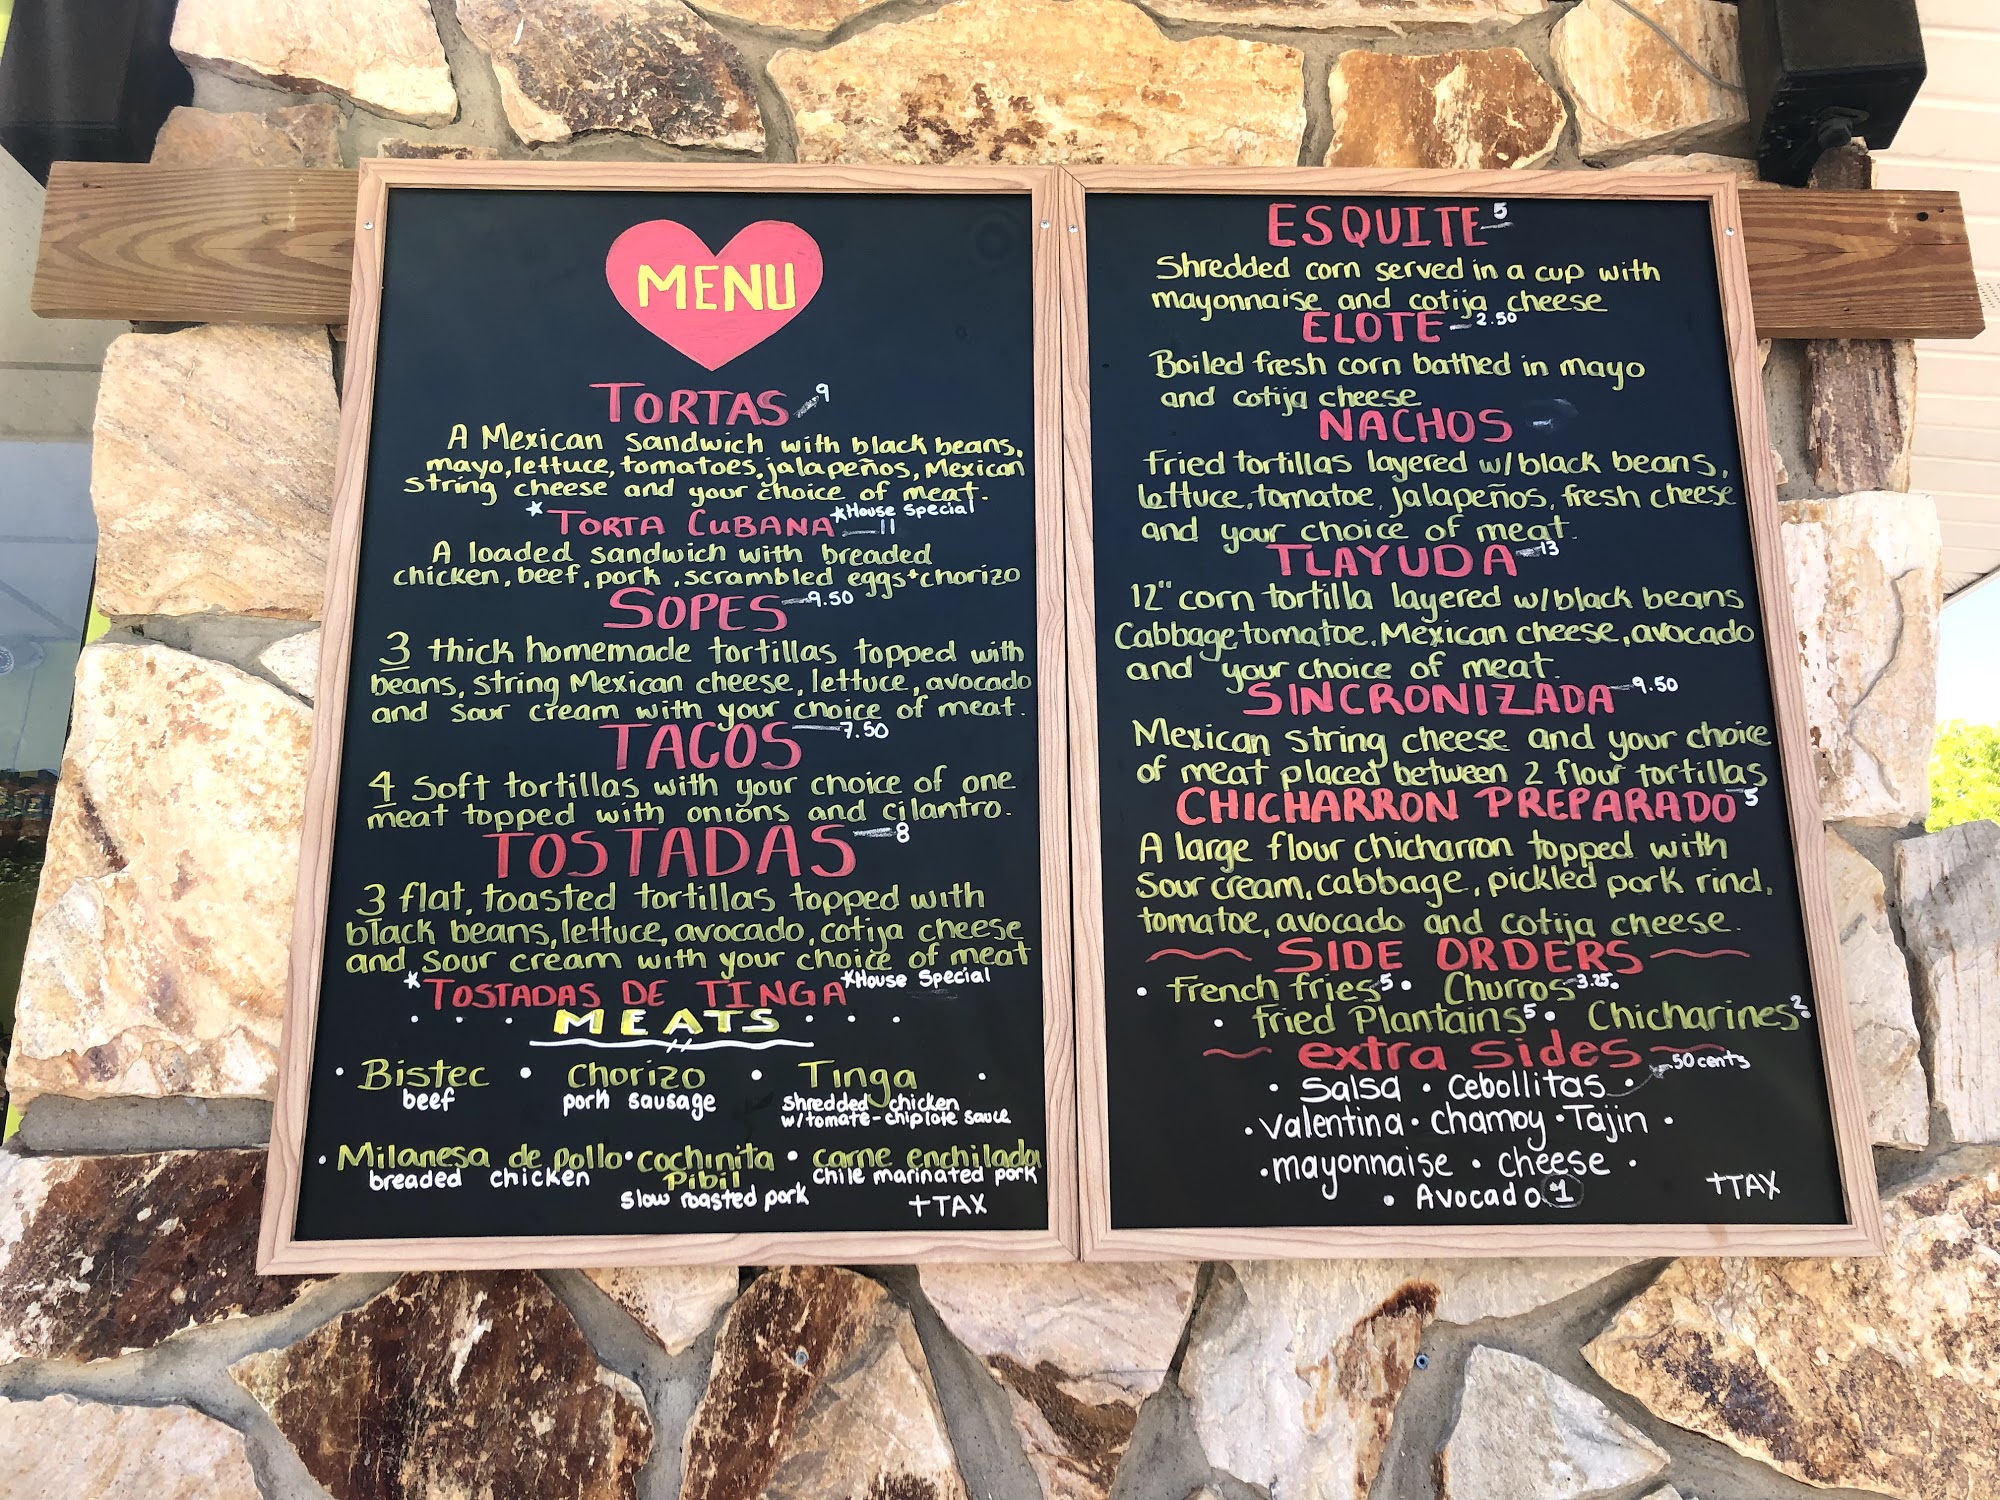 MENU
TORTAS - 9
A Mexican sandwich with black beans,
mayo, lettuce, tomatoes, jalapeños, Mexican
string cheese and your choice of meat.
* TORTA CUBANA *House Special - 11
A loaded sandwich with breaded
chicken, beef, pork, scrambled eggs + chorizo
SOPES - 9.50
3 thick homemade tortillas topped with
beans, string Mexican cheese, lettuce, avocado
and sour cream with your choice of meat.
TACOS - 7.50
4 soft tortillas with your choice of one
meat topped with onions and cilantro.
TOSTADAS - 8
3 flat, toasted tortillas topped with
black beans, lettuce, avocado, cotija cheese
and sour cream with your choice of meat
* TOSTADAS DE TINGA *House Special
MEATS
• Bistec • Chorizo • Tinga •
beef pork sausage shredded chicken
w/tomate-chiplote sauce
• Milanesa de pollo • cochinita • carne enchilada
breaded chicken Pibil chile marinated pork
slow roasted pork
+TAX
ESQUITE - 5
Shredded corn served in a cup with
mayonnaise and cotija cheese
ELOTE - 2.50
Boiled fresh corn bathed in mayo
and cotija cheese
NACHOS -
fried tortillas layered w/black beans,
lettuce, tomatoe, jalapeños, fresh cheese
and your choice of meat.
TLAYUDA - 13
12" corn tortilla layered w/black beans
Cabbage tomatoe, Mexican cheese, avocado
and your choice of meat.
SINCRONIZADA - 9.50
Mexican string cheese and your choice
of meat placed between 2 flour tortillas
CHICHARRON PREPARADO 5
A large flour chicharron topped with
Sour cream, cabbage, pickled pork rind,
tomatoe, avocado and cotija cheese.
SIDE ORDERS
• French fries 5 • Churros 3.25 •
• fried Plantains 5 • Chicharines 2 •
extra sides - 50 cents
• Salsa • Cebollitas •
• Valentina • Chamoy • Tajin •
• mayonnaise • Cheese •
• Avocado $1
+TAX